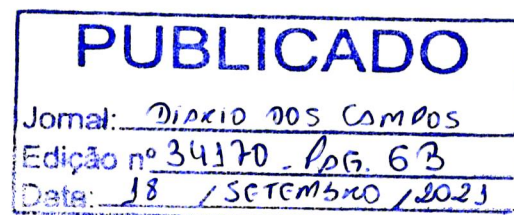 PUBLICADO
Jornal: DIARIO DOS CAMPOS
Edição nº 34170 - PAG. 6B
Data: 18 / SETEMBRO / 2021